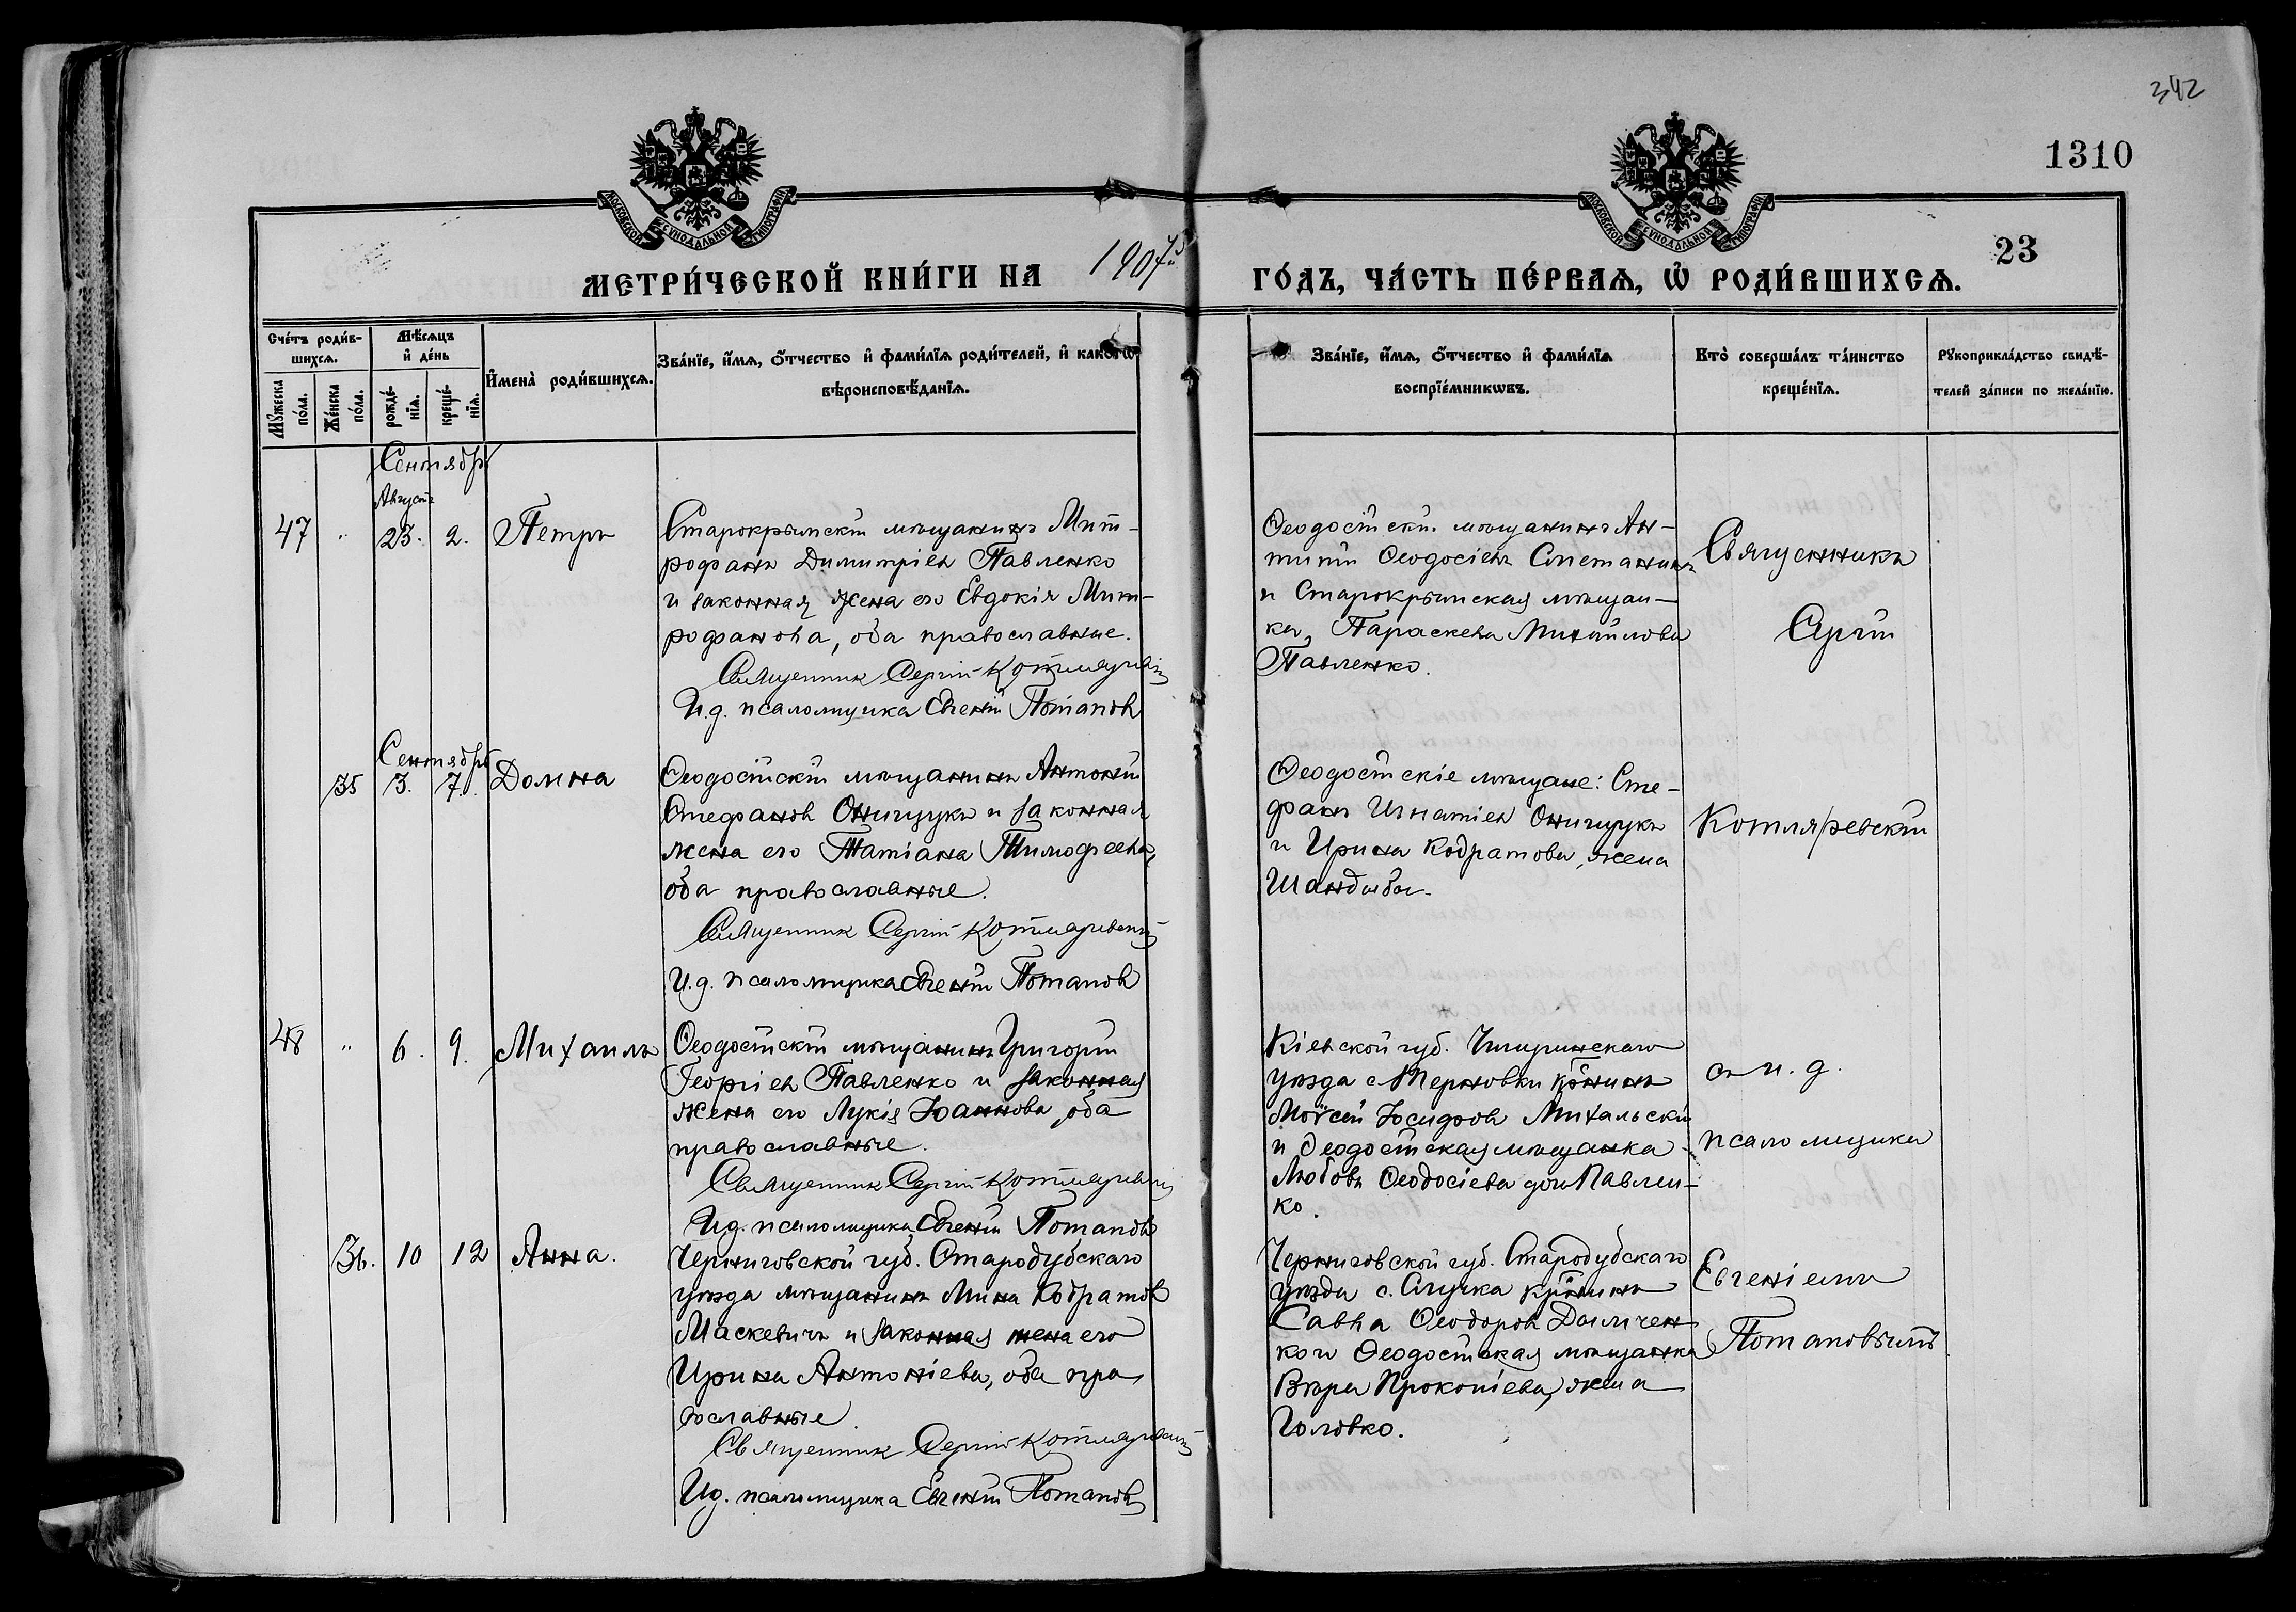 342
1310
23
МОСКОВСКОЙ СѴНОДАЛЬНОЙ ТИПОГРАФІИ
МОСКОВСКОЙ СѴНОДАЛЬНОЙ ТИПОГРАФІИ
МЕТРИ́ЧЕСКОЙ КНИ́ГИ НА 1907й ГО́ДЪ, ЧА́СТЬ ПЕ́РВАѦ, Ѡ҆ РОДИ́ВШИХСѦ.
Сче́тъ роди́в-
шихсѧ.
Мѣ́сѧцъ
и҆ де́нь
Мꙋ́жеска
по́ла.
Же́нска
по́ла.
рожде́-
нїѧ.
креще́-
нїѧ.
И҆мена̀ роди́вшихсѧ.
Зва́нїе, и҆́мѧ, ѻ҆́тчество и҆ фами́лїѧ роди́телей, и҆ како́гѡ
вѣроисповѣ́данїѧ.
Зва́нїе, и҆́мѧ, ѻ҆́тчество и҆ фами́лїѧ
воспрїе́мникѡвъ.
Кто̀ соверша́лъ та́инство
креще́нїѧ.
Рꙋкоприкла́дство свидѣ́-
телей за́писи по жела́нїю.
Сентябрь
Августъ
47 " 23. 2. Петръ
Старокрымскій мѣщанинъ Мит-
рофанъ Димитріев Павленко
и законная жена его Евдокія Мит-
рофанова, оба православные.
Священник Сергій Котляревскій
И.д. псаломщика Евгеній Потапов
Ѳеодосійскій мѣщанинъ Ан-
типій Ѳеодосіевъ Сметанинъ
и Старокрымская мѣщан-
ка, Параскева Михайлова
Павленко.
Священникъ
Сергій
Сентябрь
35 3. 7. Домна
Ѳеодосійскій мѣщанинъ Антоній
Стефановъ Онищукъ и законная
жена его Татіана Тимофеева,
оба православные.
Священник Сергій Котляревскій
И.д. псаломщика Евгеній Потапов
Ѳеодосійскіе мѣщане: Сте-
фанъ Игнатіев Онищукъ
и Ирина Кодратова, жена
Шандыбы.
Котляревскій
48 " 6. 9. Михаилъ
Ѳеодосійскій мѣщанинъ Григорій
Георгіев Павленко и законная
жена его Лукія Іоаннова, оба
православные.
Священник Сергій Котляревскій
И.д. псаломщика Евгеній Потапов
Кіевской губ. Чигиринскаго
уѣзда с. Терновки кр̃нинъ
Моѵсей Іосифов Михальскій
и Ѳеодосійская мѣщанка
Любовь Ѳеодосіева дочь Павлен-
ко.
съ и. д.
псаломщика
36. 10 12 Анна.
Черниговской губ. Стародубскаго
уѣзда мѣщанинъ Мина Кодратов
Маскевичъ и законная жена его
Ирина Антоніева, оба пра
вославные
Священник Сергій Котляревскій
И.д. псаломщика Евгеній Потапов
Черниговской губ. Стародубскаго
уѣзда с. Случка кр̃нинъ
Савва Ѳеодоров Данчен
ко и Ѳеодосійская мѣщанка
Вѣра Прокопіева, жена
Головко.
Евгеніемъ
Потаповымъ